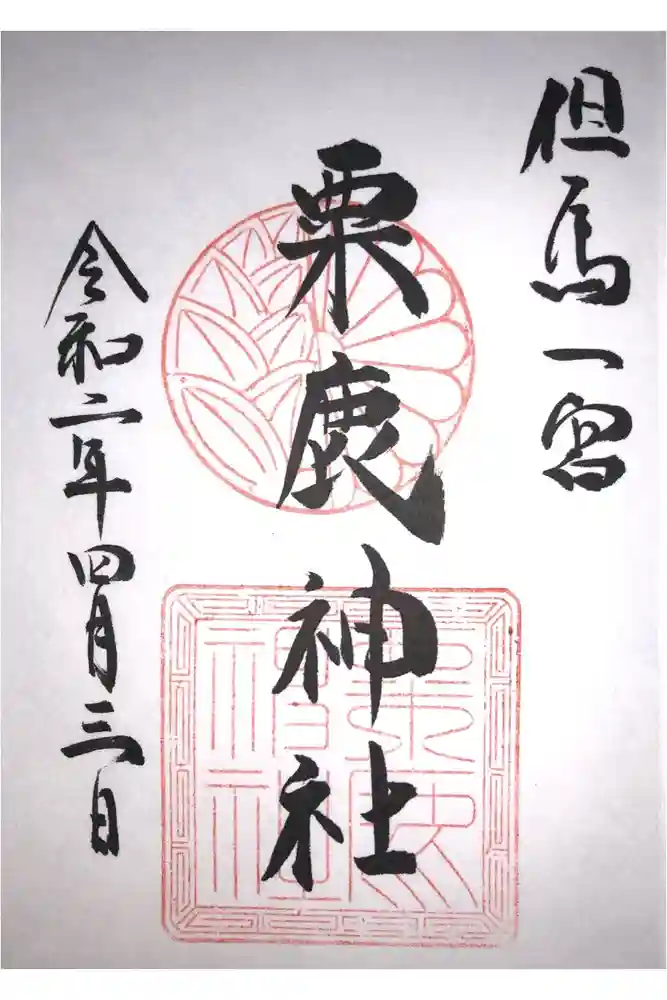 但馬一宮
粟鹿神社
令和二年四月三日
粟鹿
神社